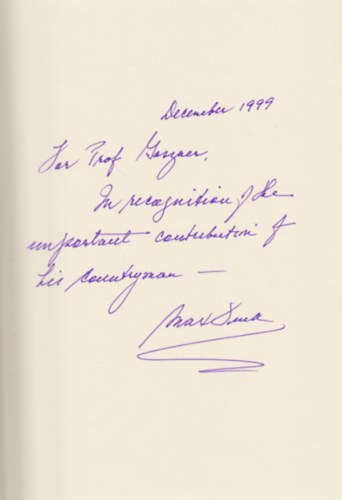 December 1999
For Prof
In recognition of the
important contribution of
his countryman —
Max